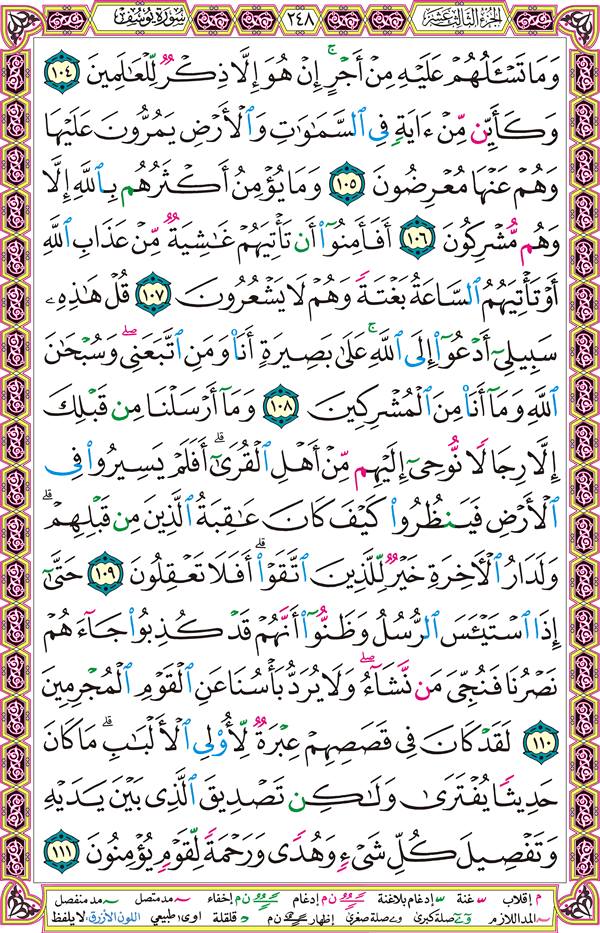 الجزء الثالث عشر ٢٤٨ سورة يوسف
وَمَا تَسْـَٔلُهُمْ عَلَيْهِ مِنْ أَجْرٍ ۚ إِنْ هُوَ إِلَّا ذِكْرٌ لِّلْعَـٰلَمِينَ ١٠٤
وَكَأَيِّن مِّنْ ءَايَةٍ فِى ٱلسَّمَـٰوَٰتِ وَٱلْأَرْضِ يَمُرُّونَ عَلَيْهَا
وَهُمْ عَنْهَا مُعْرِضُونَ ١٠٥ وَمَا يُؤْمِنُ أَكْثَرُهُم بِٱللَّهِ إِلَّا
وَهُم مُّشْرِكُونَ ١٠٦ أَفَأَمِنُوٓا۟ أَن تَأْتِيَهُمْ غَـٰشِيَةٌ مِّنْ عَذَابِ ٱللَّهِ
أَوْ تَأْتِيَهُمُ ٱلسَّاعَةُ بَغْتَةً وَهُمْ لَا يَشْعُرُونَ ١٠٧ قُلْ هَـٰذِهِۦ
سَبِيلِىٓ أَدْعُوٓا۟ إِلَى ٱللَّهِ ۚ عَلَىٰ بَصِيرَةٍ أَنَا۠ وَمَنِ ٱتَّبَعَنِى ۖ وَسُبْحَـٰنَ
ٱللَّهِ وَمَآ أَنَا۠ مِنَ ٱلْمُشْرِكِينَ ١٠٨ وَمَآ أَرْسَلْنَا مِن قَبْلِكَ
إِلَّا رِجَالًا نُّوحِىٓ إِلَيْهِم مِّنْ أَهْلِ ٱلْقُرَىٰٓ ۗ أَفَلَمْ يَسِيرُوا۟ فِى
ٱلْأَرْضِ فَيَنظُرُوا۟ كَيْفَ كَانَ عَـٰقِبَةُ ٱلَّذِينَ مِن قَبْلِهِمْ ۗ
وَلَدَارُ ٱلْـَٔاخِرَةِ خَيْرٌ لِّلَّذِينَ ٱتَّقَوْا۟ ۗ أَفَلَا تَعْقِلُونَ ١٠٩ حَتَّىٰٓ
إِذَا ٱسْتَيْـَٔسَ ٱلرُّسُلُ وَظَنُّوٓا۟ أَنَّهُمْ قَدْ كُذِبُوا۟ جَآءَهُمْ
نَصْرُنَا فَنُجِّىَ مَن نَّشَآءُ ۖ وَلَا يُرَدُّ بَأْسُنَا عَنِ ٱلْقَوْمِ ٱلْمُجْرِمِينَ
١١٠ لَقَدْ كَانَ فِى قَصَصِهِمْ عِبْرَةٌ لِّأُو۟لِى ٱلْأَلْبَـٰبِ ۗ مَا كَانَ
حَدِيثًا يُفْتَرَىٰ وَلَـٰكِن تَصْدِيقَ ٱلَّذِى بَيْنَ يَدَيْهِ
وَتَفْصِيلَ كُلِّ شَىْءٍ وَهُدًى وَرَحْمَةً لِّقَوْمٍ يُؤْمِنُونَ ١١١
م إقلاب غنة إدغام بلاغنة ن م إدغام ن م إخفاء مد متصل مد منفصل
المد اللازم صلة كبرى صلة صغرى إظهار ن م قلقلة اوى طبيعي اللون الأزرق لا يلفظ